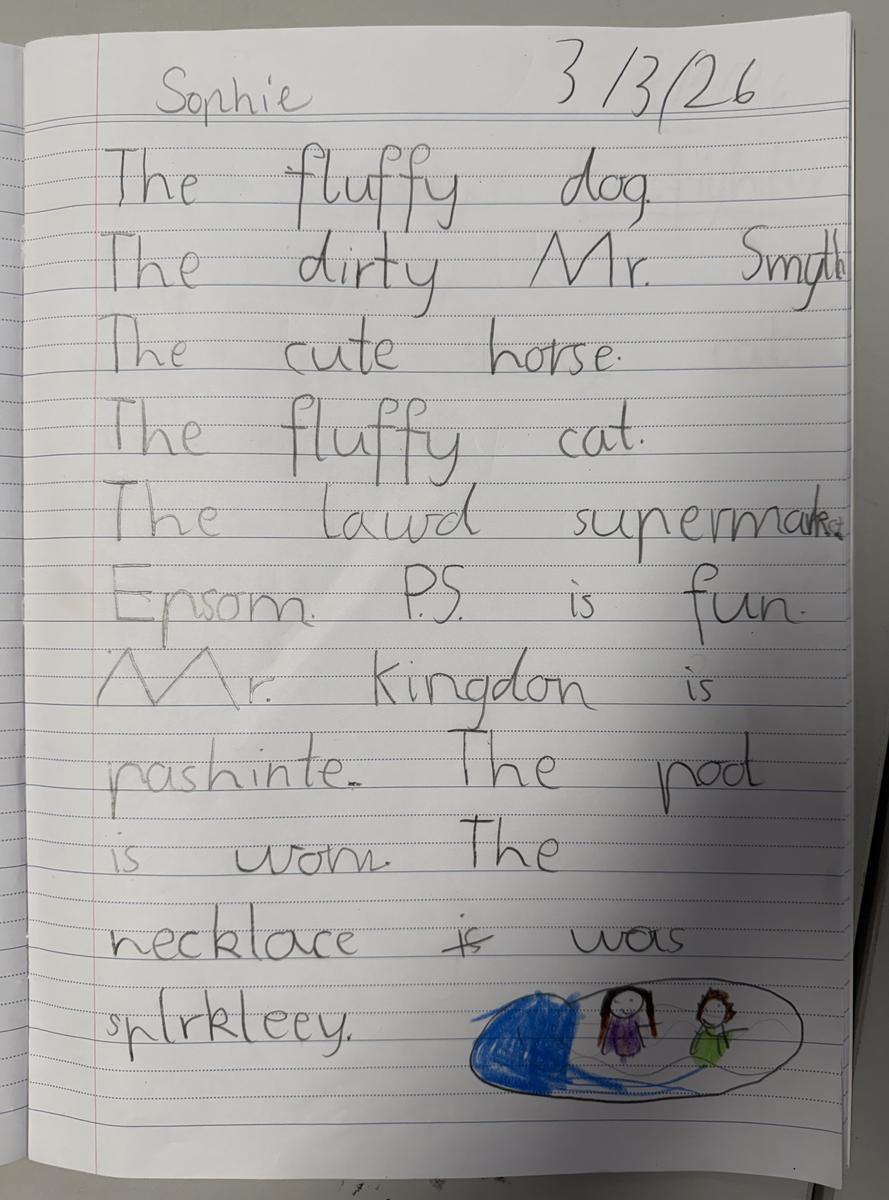 Sophie 3/3/26
The fluffy dog.
The dirty Mr. Smyth
The cute horse.
The fluffy cat.
The lawd supermarket
Epsom. P.S. is fun.
Mr. Kingdon is
pashinte. The pod
is wom. The
necklace is was
splrkleey.